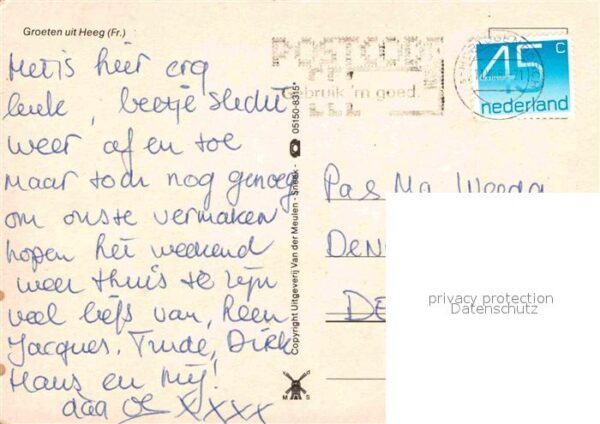 Groeten uit Heeg (Fr.)
Het is hier erg
leuk, beetje slecht
weer af en toe
maar toch nog genoeg
om onste vermaken
hopen het weekend
weer thuis te zijn
veel liefs van, Reen
Jacques, Trude, Dirk
Hans en Mij!
daa XXXX
Copyright Uitgeverij Van der Meulen - Sneek - ☎ 05150-8315*
V O
M S
POSTCODE
Gebruik 'm goed.
45 c
nederland
Pa & Ma Weeda
DEN
DE
privacy protection
Datenschutz